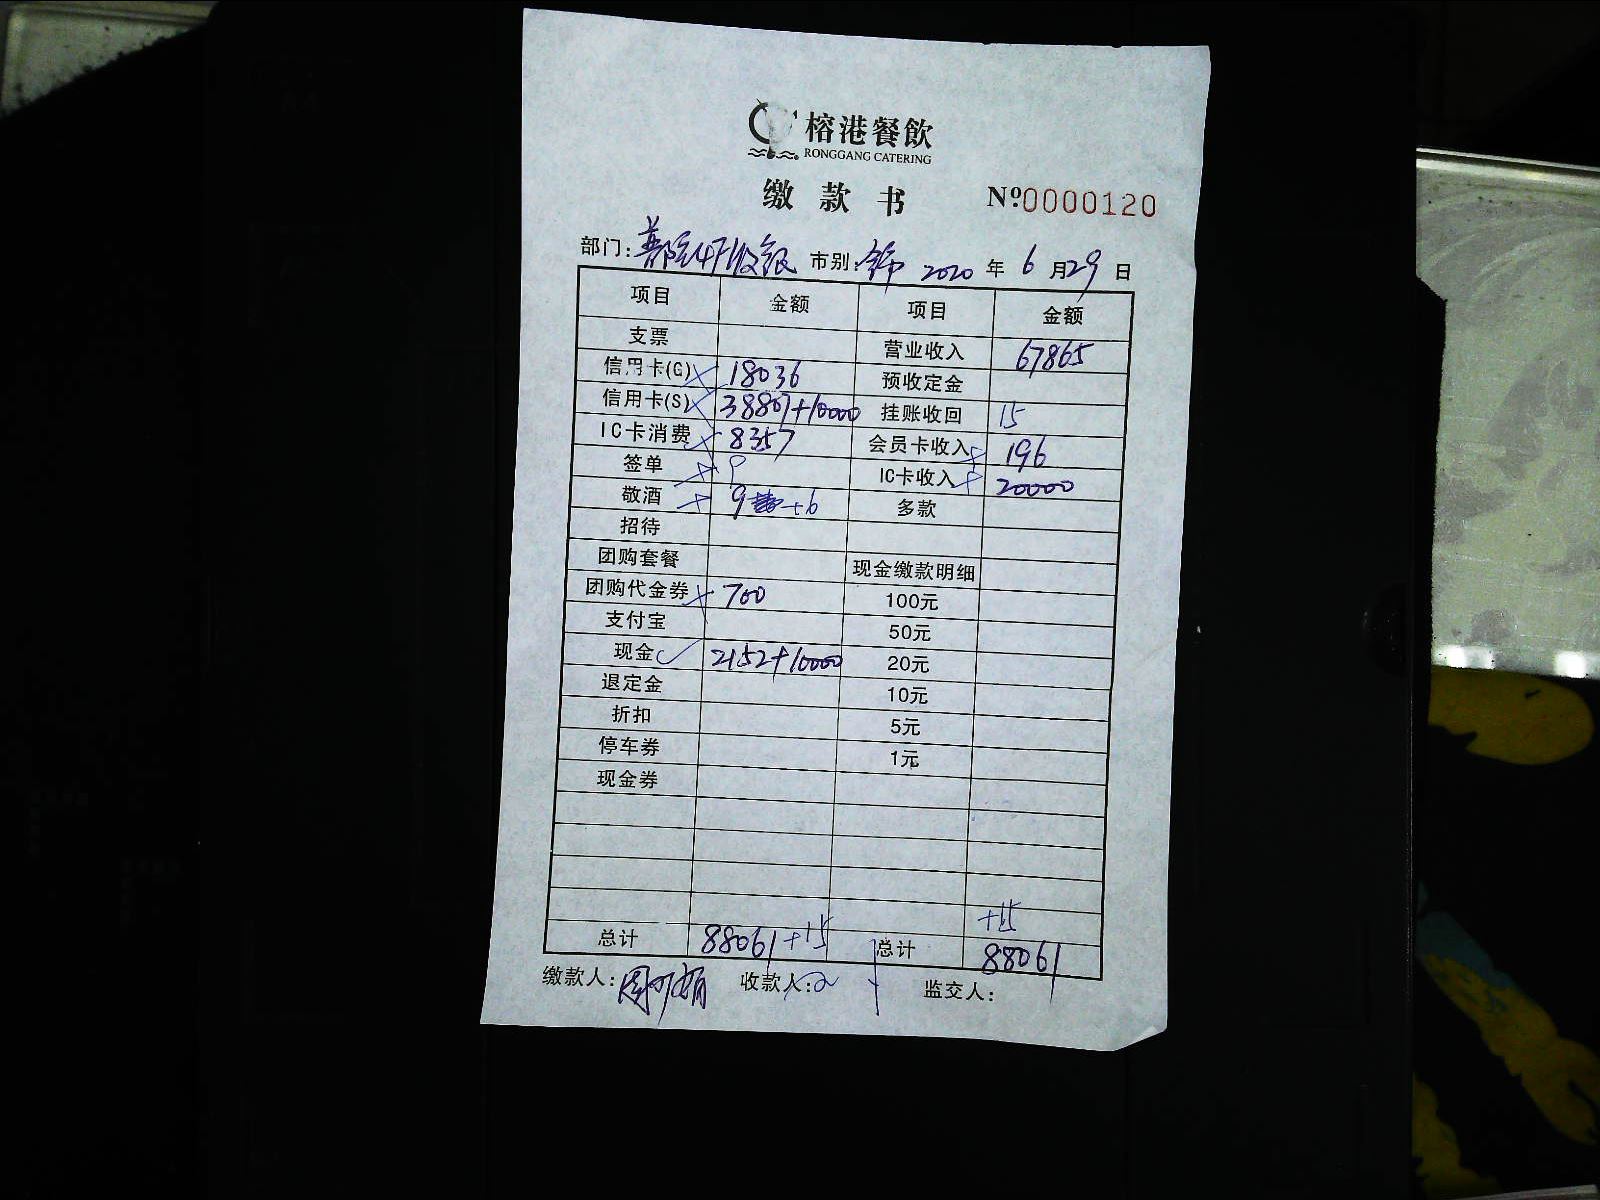 榕港餐飲
RONGGANG CATERING
缴款书 №0000120
部门: 4F收银 市别: 2020 年 6 月 29 日
项目 金额 项目 金额
支票 营业收入 67865
信用卡(G) 18036 预收定金
信用卡(S) 38807+10000 挂账收回 15
IC卡消费 8357 会员卡收入 196
签单 IC卡收入 20000
敬酒 9 +6 多款
招待
团购套餐 现金缴款明细
团购代金券 700 100元
支付宝 50元
现金 2152+10000 20元
退定金 10元
折扣 5元
停车券 1元
现金券
+15
总计 88061 +15 总计 88061
缴款人: 收款人: 监交人: